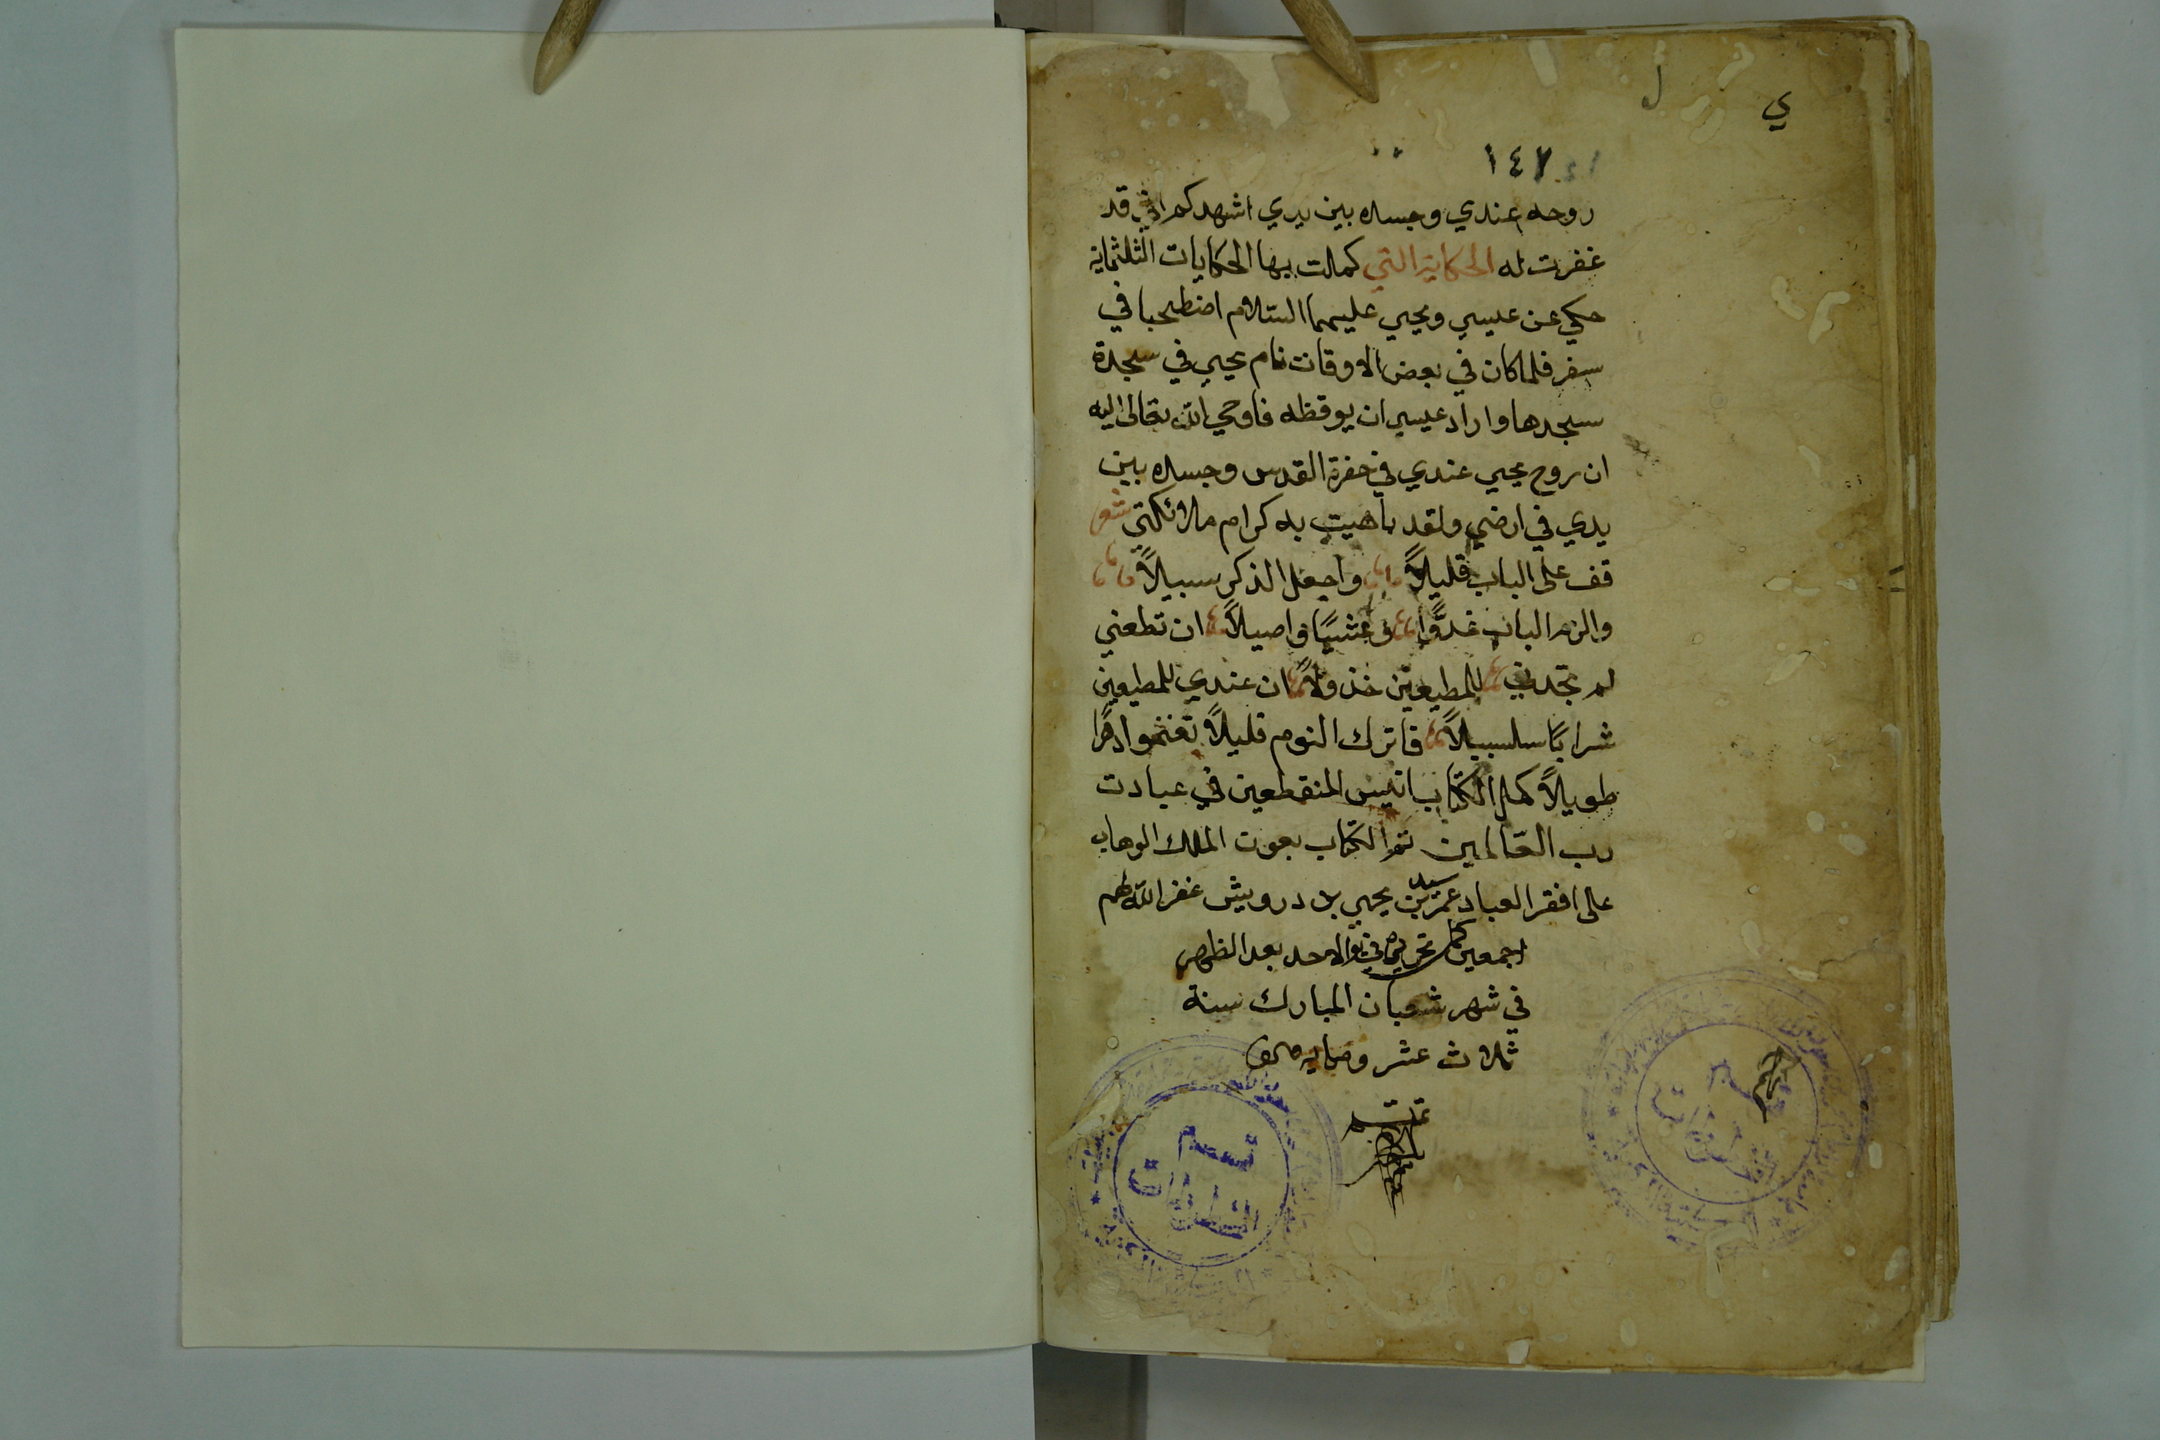 ل ي
١٤٧
روحه عندي وجسده بين يدي اشهدكم اني قد
غفرت له الحكاية التي كملت بها الحكايات الثلثماية
حكي عن عيسي ويحيي عليهما السلام اصطحبا في
سفر فلما كان في بعض الاوقات نام يحيي في سجدة
سجدها واراد عيسي ان يوقظه فاوحي الله تعالى اليه
ان روح يحيي عندي في حضرة القدس وجسده بين
يدي في ارضي ولقد باهيت به كرام ملائكتي شعر
قف على الباب قليلاً واجعل الذكر سبيلاً
والزم الباب غدوًّا وعشيًا واصيلاً ان تطعني
لم تجدني للمطيعين خذولاً ان عندي للمطيعين
شرابًا سلسبيلاً فاترك النوم قليلاً تغنموا دهرًا
طويلاً كمل الكتاب انيس المنقطعين في عبادت
رب العالمين تم الكتاب بعون الملك الوهاب
على افقر العباد سيد عمر بن يحيي بن درويش غفر الله لهم
اجمعين الاحد بعد الظهر
في شهر شعبان المبارك سنة
ثلاث عشر ومايه
تمت
قسم
المخطوطات
قسم
المخطوطات